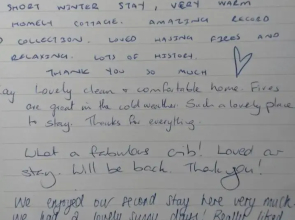 SHORT WINTER STAY, VERY WARM
HOMELY COTTAGE. AMAZING RECORD
COLLECTION. LOVED HAVING FIRES AND
RELAXING. LOTS OF HISTORY.
THANK YOU SO MUCH
Lovely clean & comfortable home. Fires
are great in the cold weather. Such a lovely place
to stay. Thanks for everything.
What a fabulous crib! Loved our
stay. Will be back. Thank you!
We enjoyed our second stay here very much
we had 2 lovely sunny days! Really liked